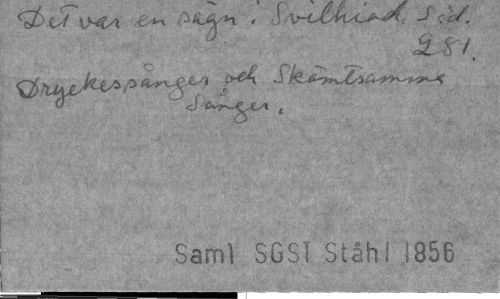 Det var en sägn! Svithiod. Sid.
281.
Dryckessånger och Skämtsamma
Sånger.
Saml SGSI Ståhl 1856